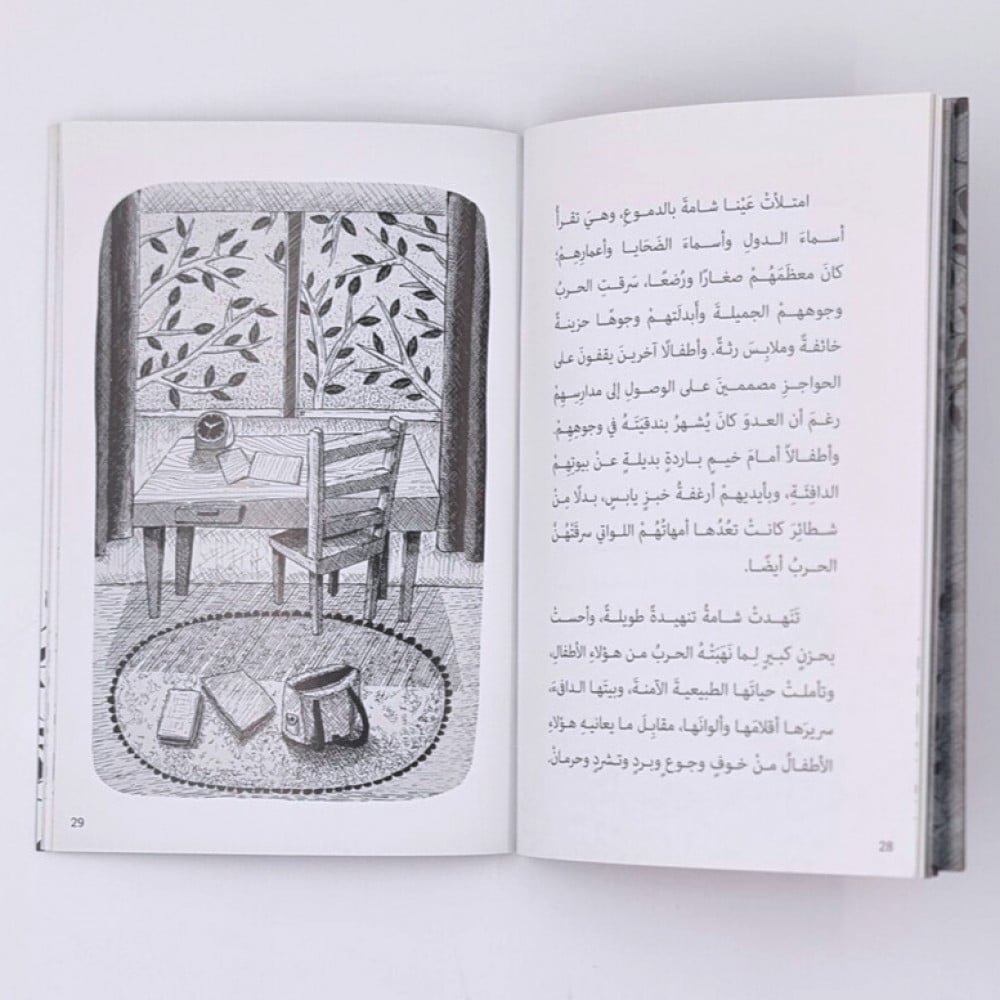 امتلأتْ عَيْنا شامةَ بالدموعِ، وهيَ تقرأُ
أسماءَ الدولِ وأسماءَ الضَحَايا وأعمارِهِمْ؛
كانَ معظَمَهُمْ صغارًا ورُضعًا، سَرقتِ الحربُ
وجوههمْ الجميلةَ وأبدلَتهمْ وجوهًا حزينةً
خائفةً وملابِسَ رثةً. وأطفالًا آخرينَ يقفونَ على
الحواجزِ مصممينَ على الوصولِ إلى مدارسِهِمْ
رغمَ أن العدوَ كانَ يُشهرُ بندقيَتَهُ في وجوهِهِمْ.
وأطفالاً أمامَ خيمٍ باردةٍ بديلةٍ عنْ بيوتهِمْ
الدافئَةِ، وبأيديهمْ أرغفةُ خبزٍ يابسٍ، بدلًا مِنْ
شطائِرَ كانتْ تعُدُها أمهاتُهُمْ اللواتي سرقَتْهُنْ
الحربُ أيضًا.
تَنَهدتْ شامةُ تنهيدةً طويلةً، وأحستْ
بحزنٍ كبيرٍ لِما نَهَبَتْهُ الحربُ من هؤلاءِ الأطفالِ،
وتأملتْ حياتَها الطبيعيةَ الآمنةَ، وبيتَها الدافِءَ،
سريرَها أقلامَها وألوانَها، مقابِلَ ما يعانيهِ هؤلاءِ
الأطفالُ مِنْ خوفٍ وجوعٍ وبردٍ وتشردٍ وحرمانْ.
28
29